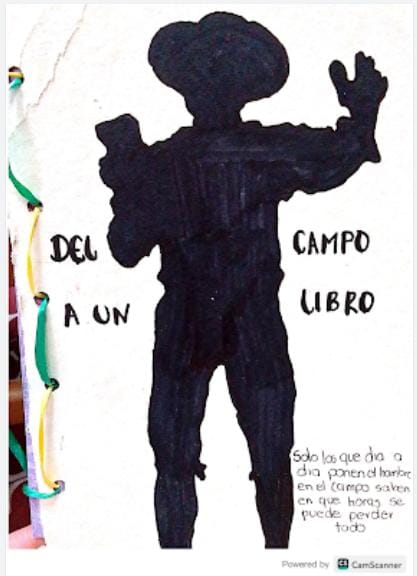 DEL CAMPO
A UN LIBRO
Solo los que dia a
dia ponen el hombro
en el campo saben
en que horas se
puede perder
todo
Powered by CS CamScanner